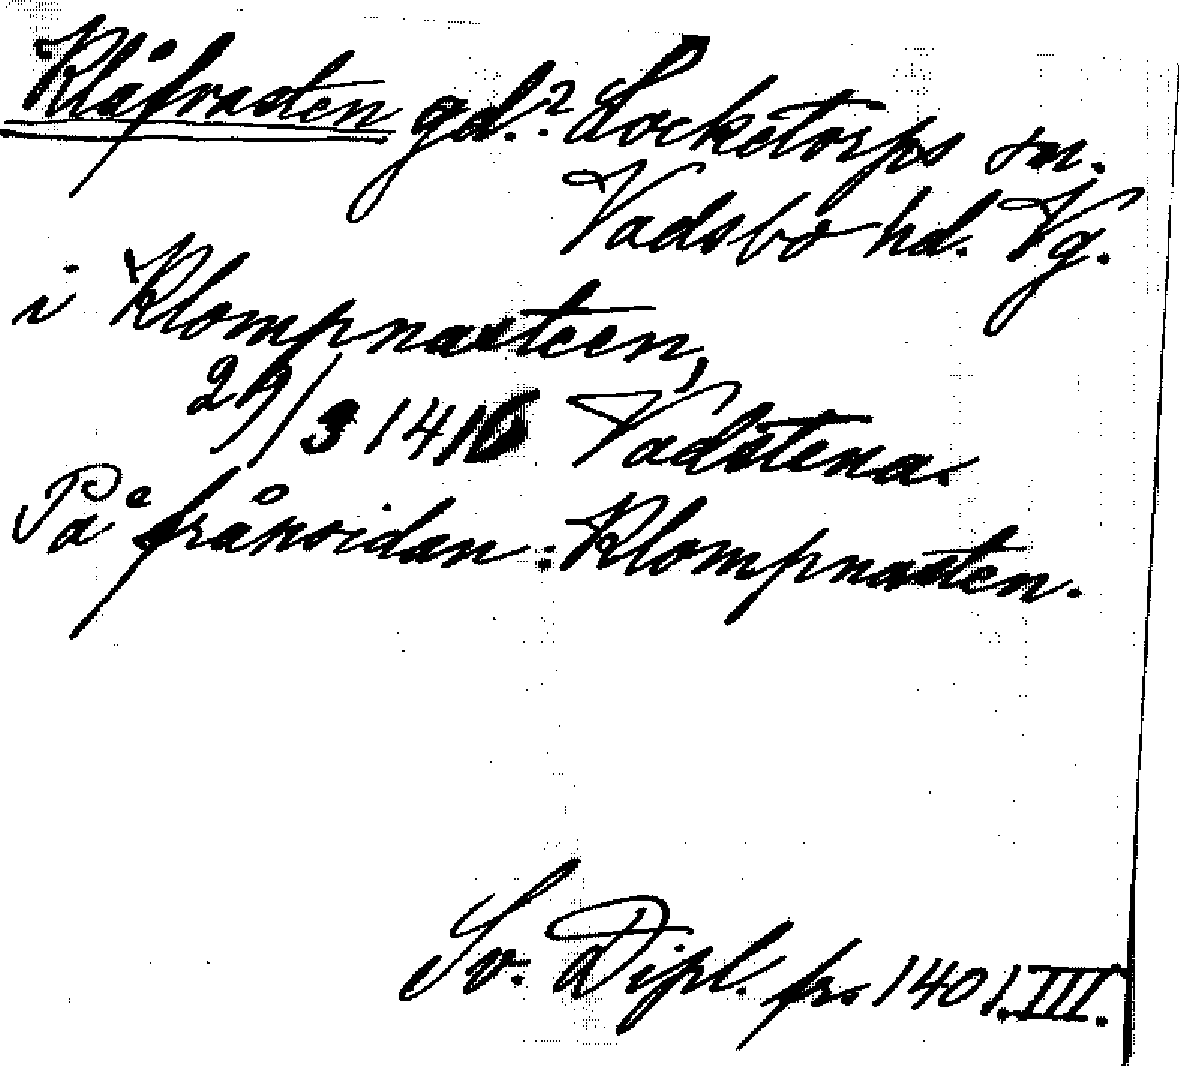 Klåfrasten gd.? Locketorps sn.
Vadsbo hd. Vg.
i Klompnasteen,
29/3 1416 Vadstena.
På frånsidan: Klompnasten.
Sv. Dipl. fr. 1401. III.